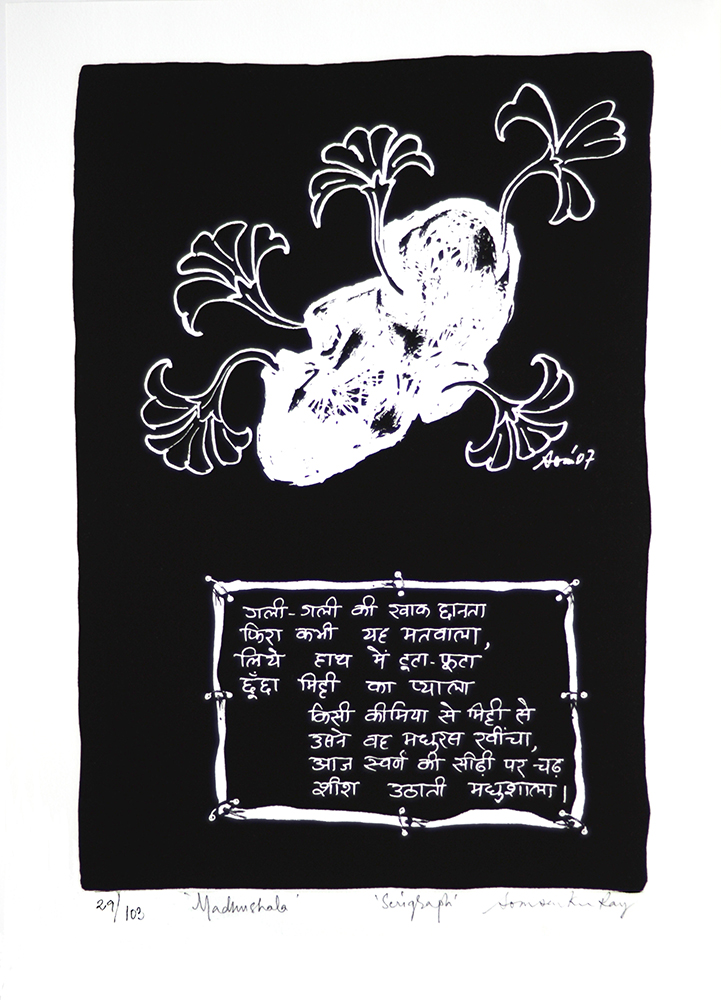 Som'07
गली-गली की खाक छानता
फिरा कभी यह मतवाला,
लिये हाथ में टूटा-फूटा
छूँछा मिट्टी का प्याला
किसी कीमिया से मिट्टी से
उसने वह मधुरस खींचा,
आज स्वर्ण की सीढ़ी पर चढ़
शीश उठाती मधुशाला।
29/102 'Madhushala' 'Serigraph'